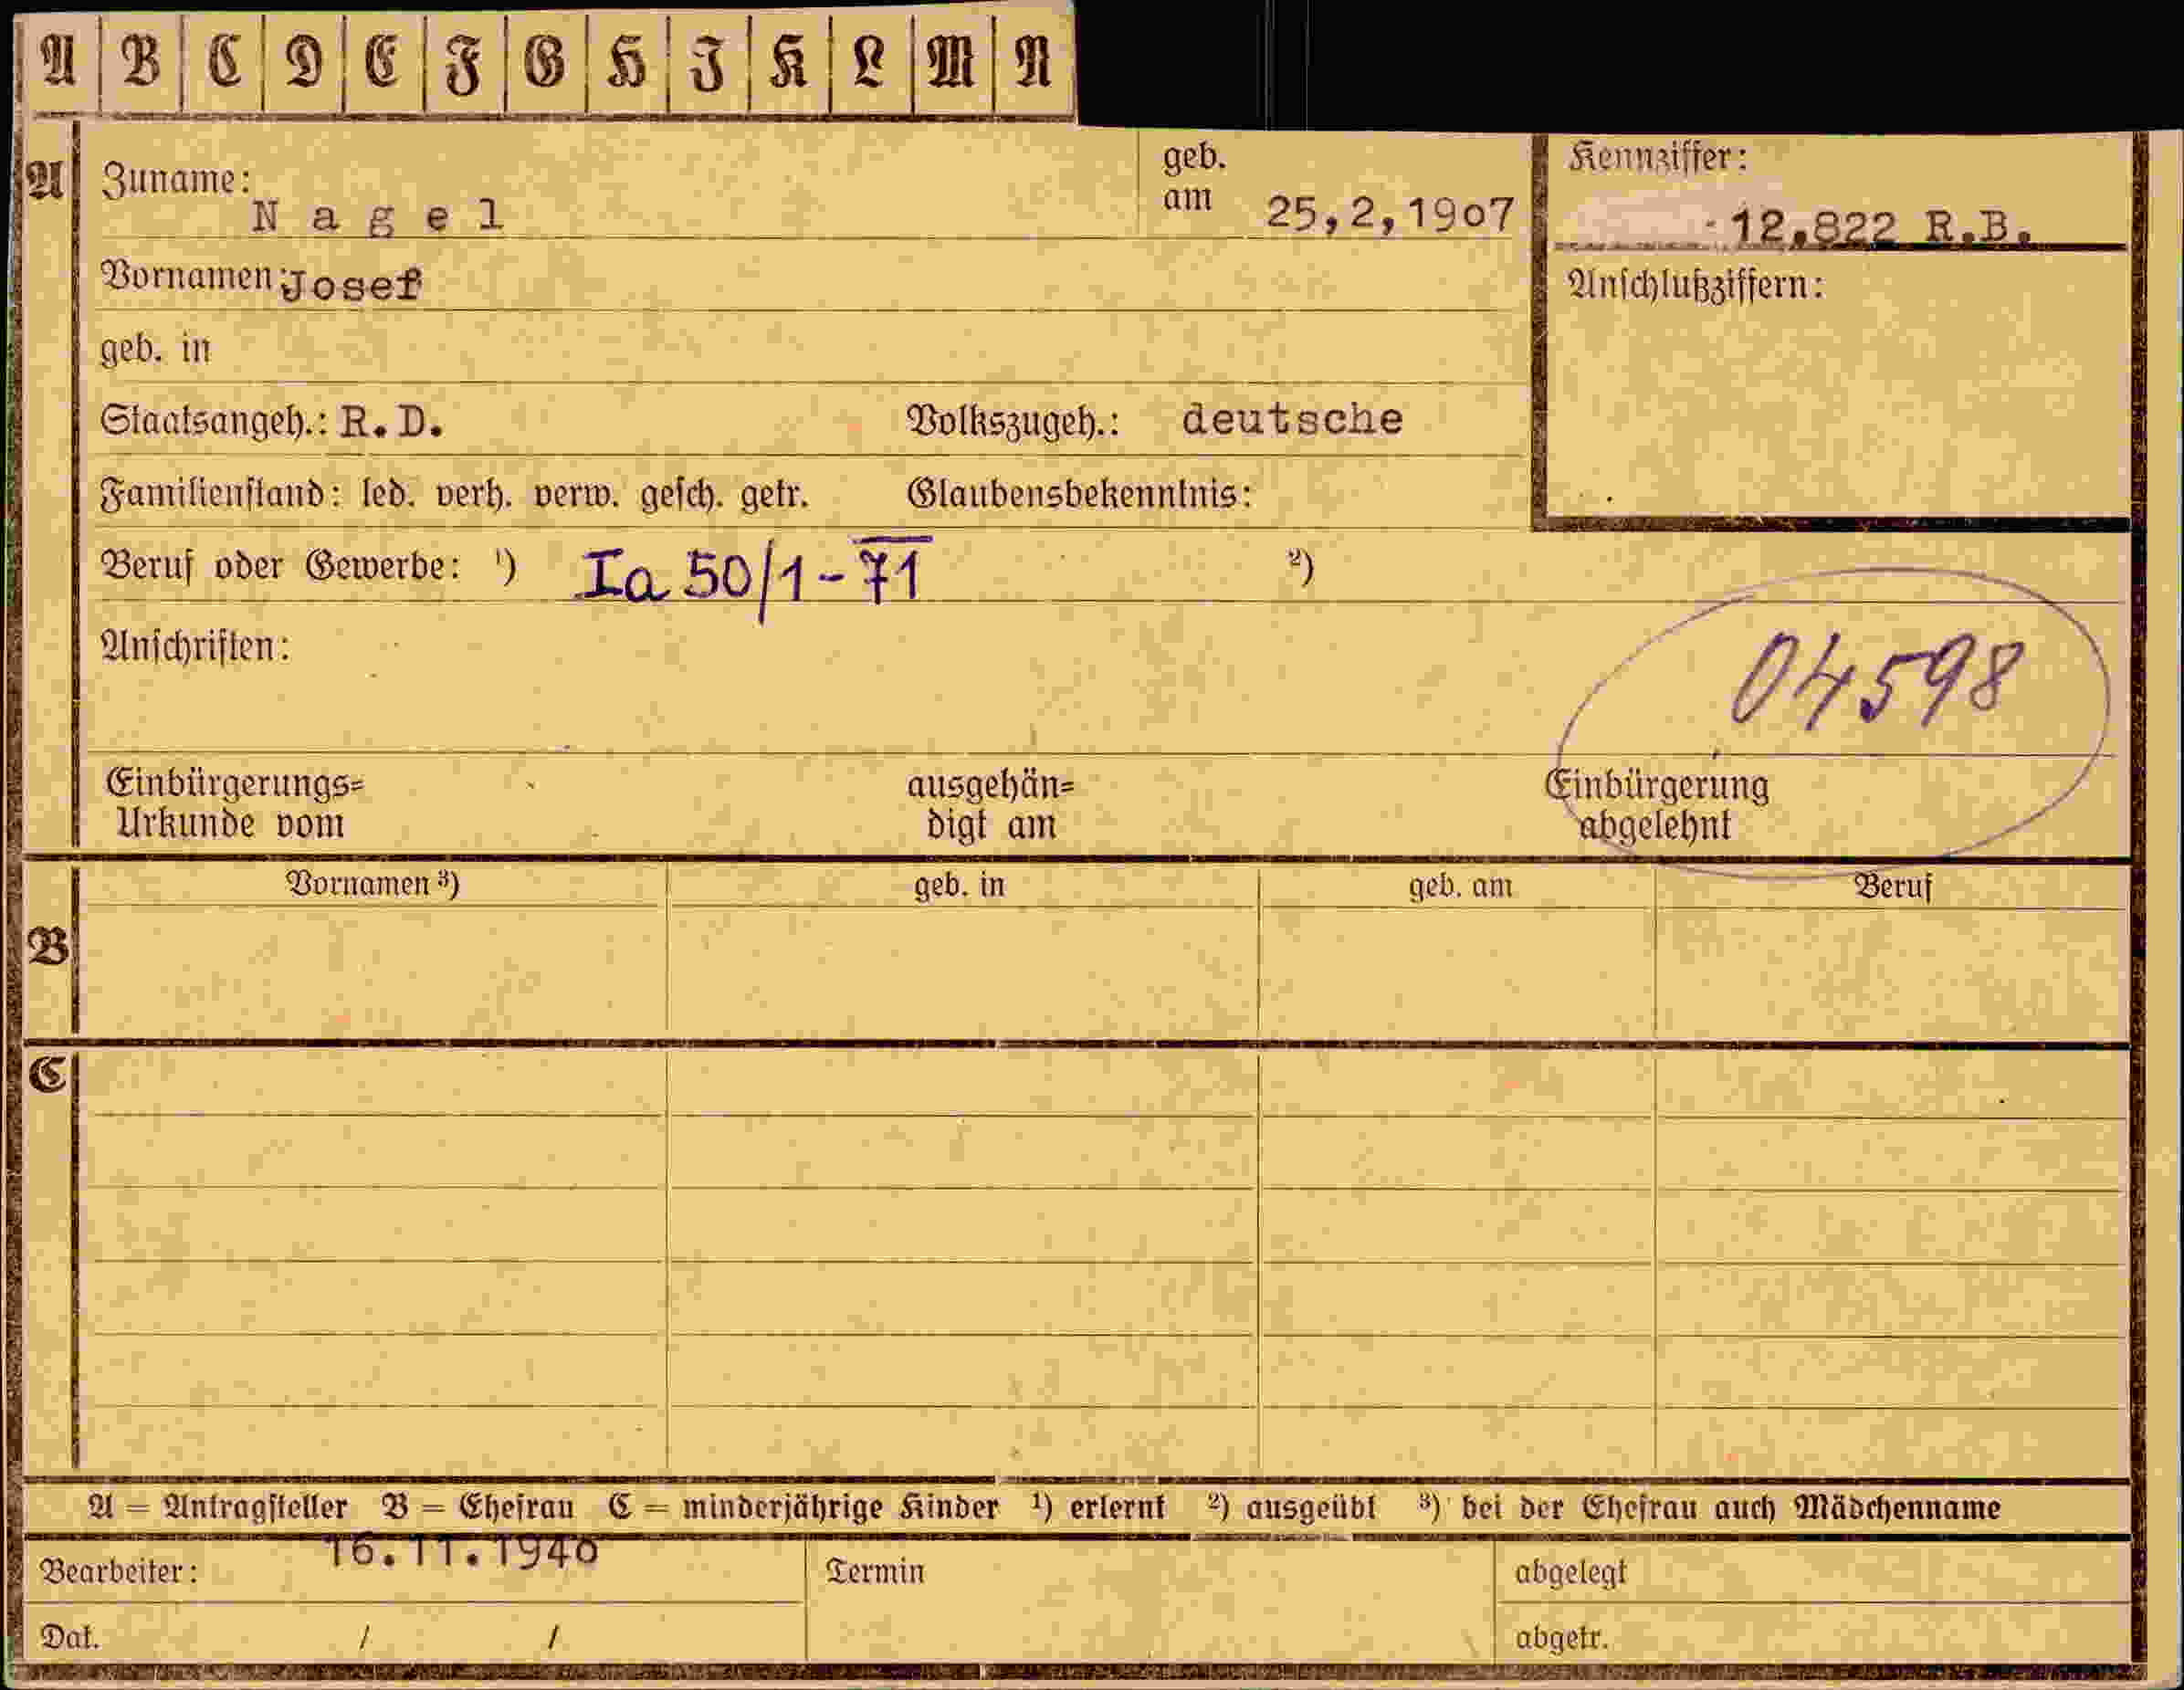 A B C D E F G H I K L M N
A
Zuname: Nagel
geb. am 25,2,1907
Kennziffer:
12.822 R.B.
Vornamen: Josef
Anschlußziffern:
geb. in
Staatsangeh.: R.D. Volkszugeh.: deutsche
Familienstand: led. verh. verw. gesch. getr. Glaubensbekenntnis:
Beruf oder Gewerbe: ¹) Ia 50/1-71 ²)
Anschriften:
04598
Einbürgerungs= ausgehän= Einbürgerung
Urkunde vom digt am abgelehnt
Vornamen ³) geb. in geb. am Beruf
B
C
A = Antragsteller B = Ehefrau C = minderjährige Kinder ¹) erlernt ²) ausgeübt ³) bei der Ehefrau auch Mädchenname
16.11.1940
Bearbeiter: Termin abgelegt
Dat. / / abgetr.